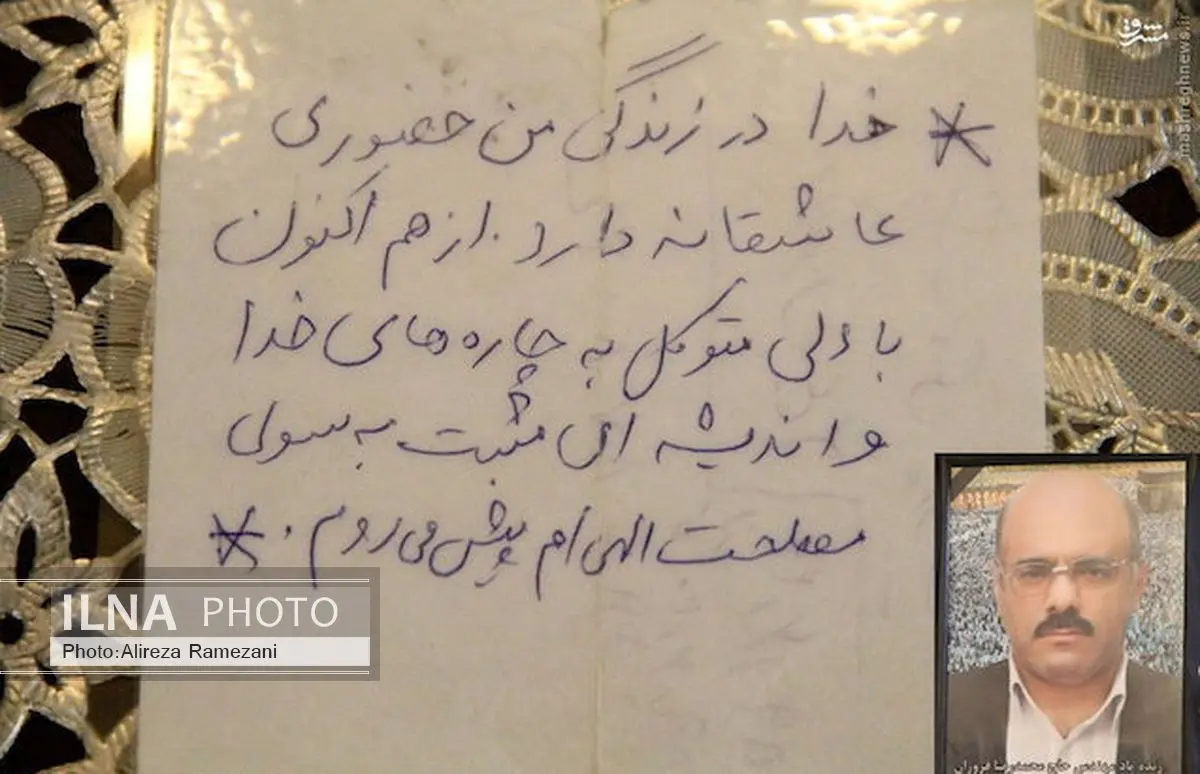 * خدا در زندگی من حضوری
عاشقانه دارد. از هم اکنون
با دلی متوکل به چاره های خدا
و اندیشه ای مثبت به سوی
مصلحت الهی ام پیش می روم. *
ILNA PHOTO
Photo:Alireza Ramezani
مشرق
mashreghnews.ir
زنده یاد مهندس حاج محمدرضا فروزان